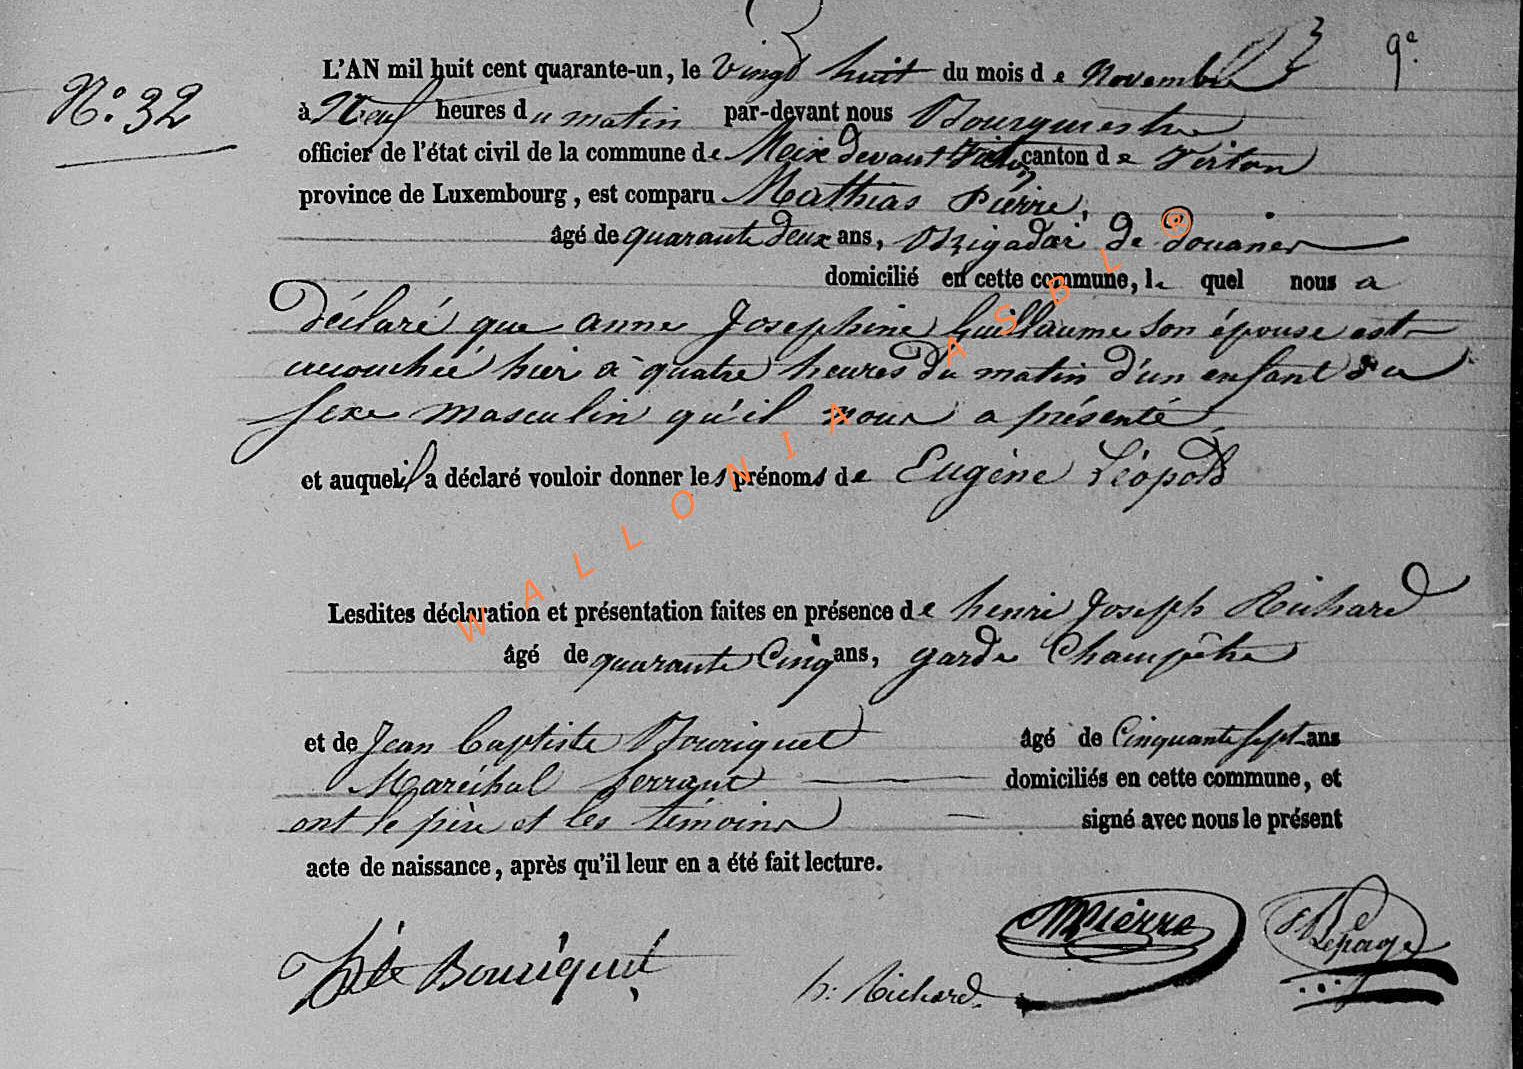 9e.
L'AN mil huit cent quarante-un, le vingt huit du mois de Novembre
N.o 32
à Neuf heures du matin par-devant nous Bourguestre
officier de l'état civil de la commune de Meix devant Virton canton de Virton
province de Luxembourg, est comparu Mathias Pierre,
âgé de quarante deux ans, Brigadier de Douanes
domicilié en cette commune, le quel nous a
Déclaré que anne Josephine Guillaume son épouse est
accouchée hier à quatre heures du matin d'un enfant du
sexe masculin qu'il nous a présenté
et auquel il a déclaré vouloir donner les prénoms de Eugène Léopold
Lesdites déclaration et présentation faites en présence de henri Joseph Richard
âgé de quarante Cinq ans, garde Champêtre
et de Jean Baptiste Bouriquet âgé de Cinquante sept ans
Maréchal ferrant domiciliés en cette commune, et
ont le père et les témoins signé avec nous le présent
acte de naissance, après qu'il leur en a été fait lecture.
MPierre
Lepage
Bouriquet
h: Richard
WALLONIA ASBL ©